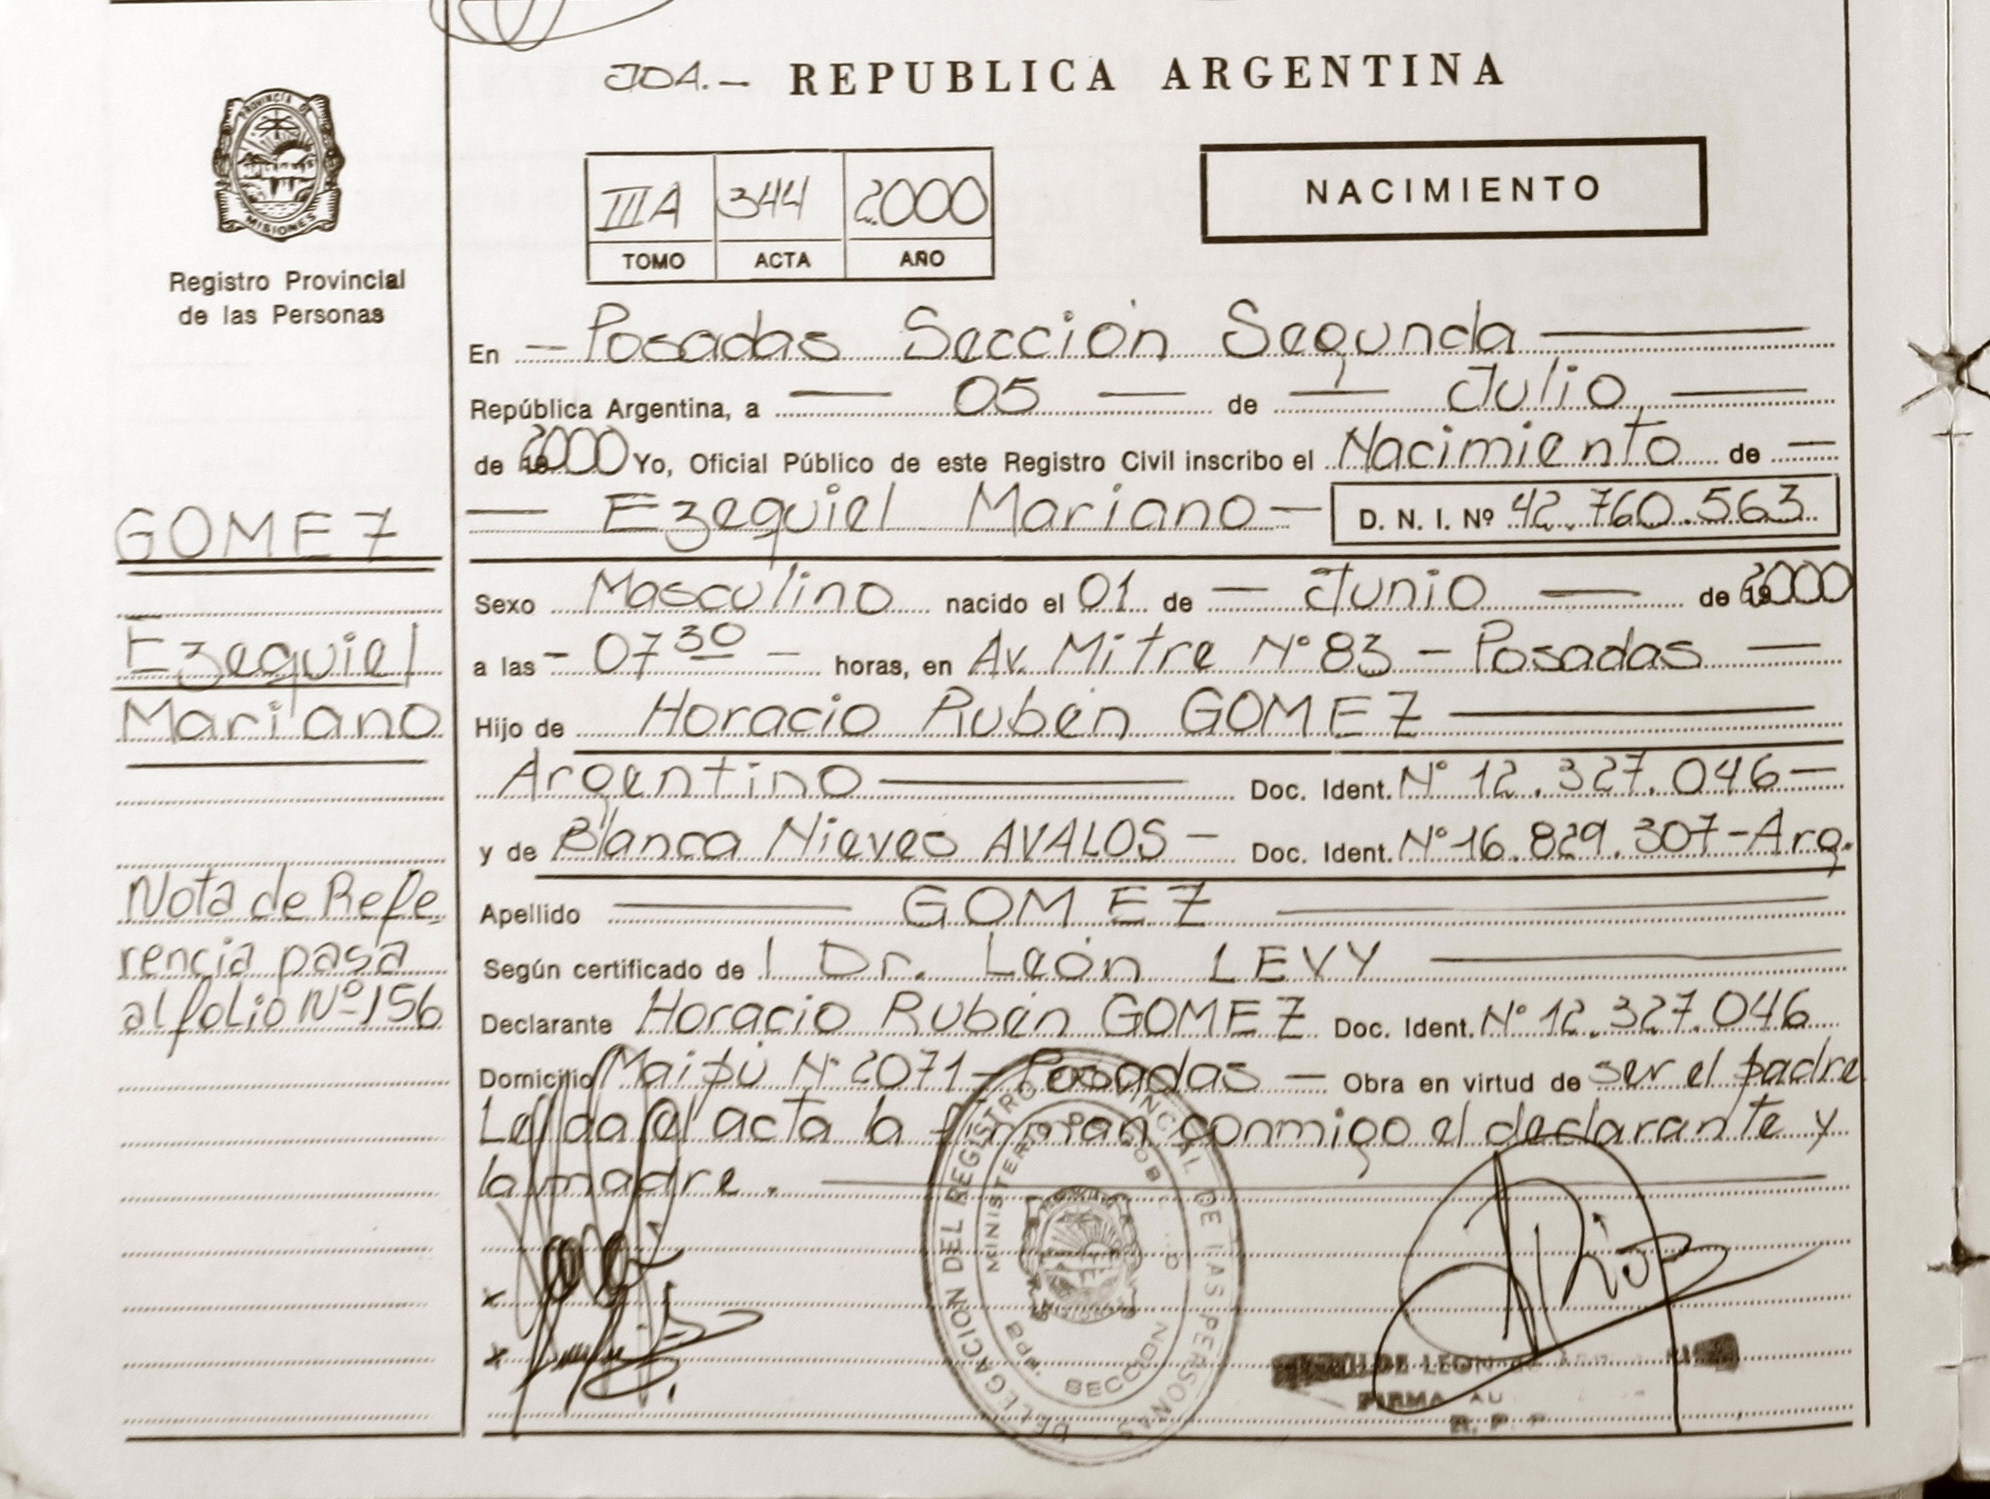 JDA.- REPUBLICA ARGENTINA
PROVINCIA DE MISIONES
Registro Provincial
de las Personas
IIIA 344 2000
TOMO ACTA AÑO
NACIMIENTO
En - Posadas Sección Segunda
República Argentina, a 05 de Julio
de 2000 Yo, Oficial Público de este Registro Civil inscribo el Nacimiento de
Ezequiel Mariano D. N. I. Nº 42.760.563
Sexo Masculino nacido el 01 de Junio de 2000
a las - 07 30 - horas, en Av. Mitre N° 83 - Posadas
Hijo de Horacio Rubén GOMEZ
Argentino Doc. Ident. N° 12.327.046
y de Blanca Nieves AVALOS - Doc. Ident. N° 16.829.307-Arg.
Apellido GOMEZ
Según certificado de l Dr. León LEVY
Declarante Horacio Rubén GOMEZ Doc. Ident. N° 12.327.046
Domicilio Maipú N° 2071 - Posadas - Obra en virtud de ser el padre
Leída el acta la firman conmigo el declarante y
la madre.
GOMEZ
Ezequiel
Mariano
Nota de Refe
rencia pasa
al folio Nº 156
DELEGACION DEL REGISTRO PROVINCIAL DE LAS PERSONAS
MINISTERIO DE GOB
SECCION
LEON
FIRMA AU
R. P. P